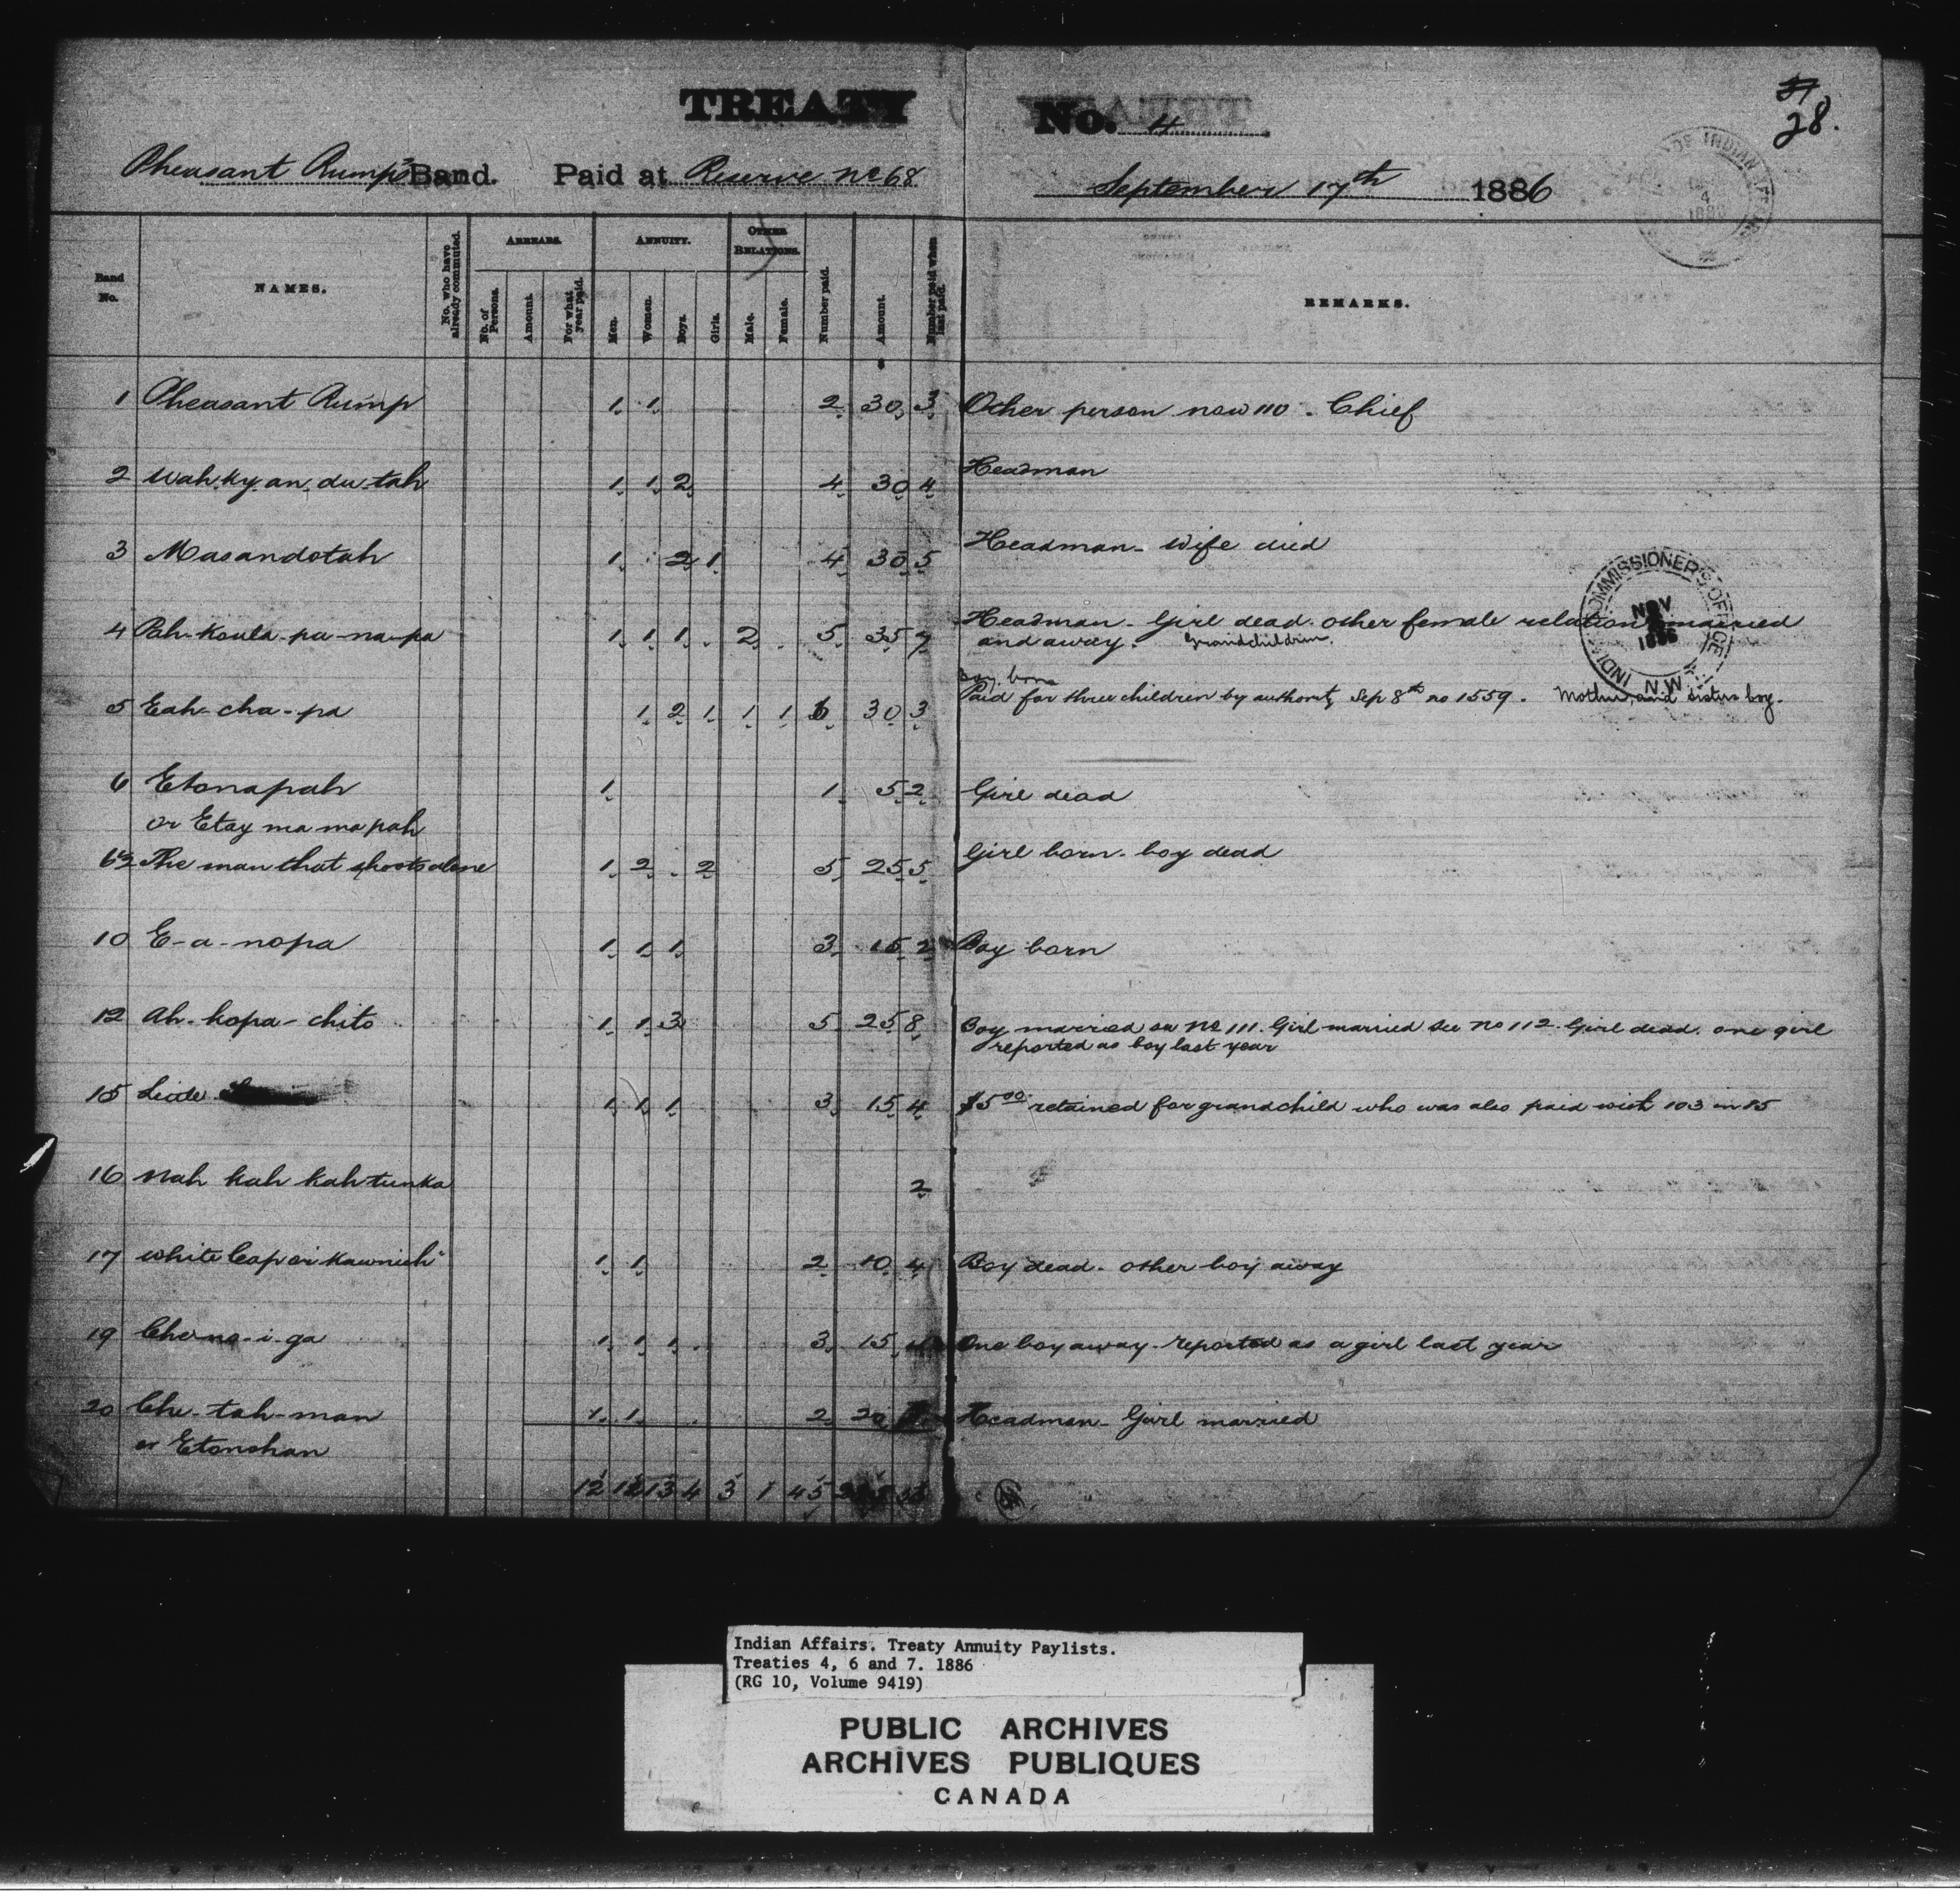 TREATY No. 4
28.
Pheasant Rump's Band. Paid at Reserve No 68 September 17th 1886
Band No.
NAMES.
No. who have already commuted.
ARREARS.
No. of Persons.
Amount.
For what year paid.
ANNUITY.
Men.
Women.
Boys.
Girls.
OTHER RELATIONS.
Male.
Female.
Number paid.
Amount.
Number paid when last paid.
REMARKS.
1 Pheasant Rump 1 1 2 30 3 Other person now 110. Chief
2 Wah-ky-an-du-tah 1 1 2 4 30 4 Headman
3 Masandotah 1 2 1 4 30 5 Headman - Wife died
4 Pah-Koula-pa-na-pa 1 1 1 2 5 35 7 Headman - Girl dead. other female relation married
and away. Grandchildren.
Boy born
5 Eah-cha-pa 1 2 1 1 1 6 30 3 Paid for three children by authority Sep 8th no 1559. Mother, and sisters boy.
6 Etonapah 1 1 5 2 Girl dead
or Etay ma ma pah
6½ The man that shoots alone 1 2 2 5 25 5 Girl born - boy dead
10 E-a-nopa 1 1 1 3 15 2 Boy born
12 Ah-kopa-chito 1 1 3 5 25 8 Boy married see No 111. Girl married see no 112. Girl dead. one girl
reported as boy last year
15 1 1 1 3 15 4 $5.00 retained for grandchild who was also paid with 103 in 85
16 Nah kah kah tunka 2
17 White Cap or Kawnich 1 1 2 10 4 Boy dead - other boy away
19 1 1 1 3 15 4 One boy away - reported as a girl last year
20 Che-tah-man 1 1 2 20 Headman - Girl married
or Etonshan
12 12 13 4 3 1 45
INDIAN COMMISSIONER'S OFFICE
NOV
1886
N.W.T.
Indian Affairs. Treaty Annuity Paylists.
Treaties 4, 6 and 7. 1886
(RG 10, Volume 9419)
PUBLIC ARCHIVES
ARCHIVES PUBLIQUES
CANADA